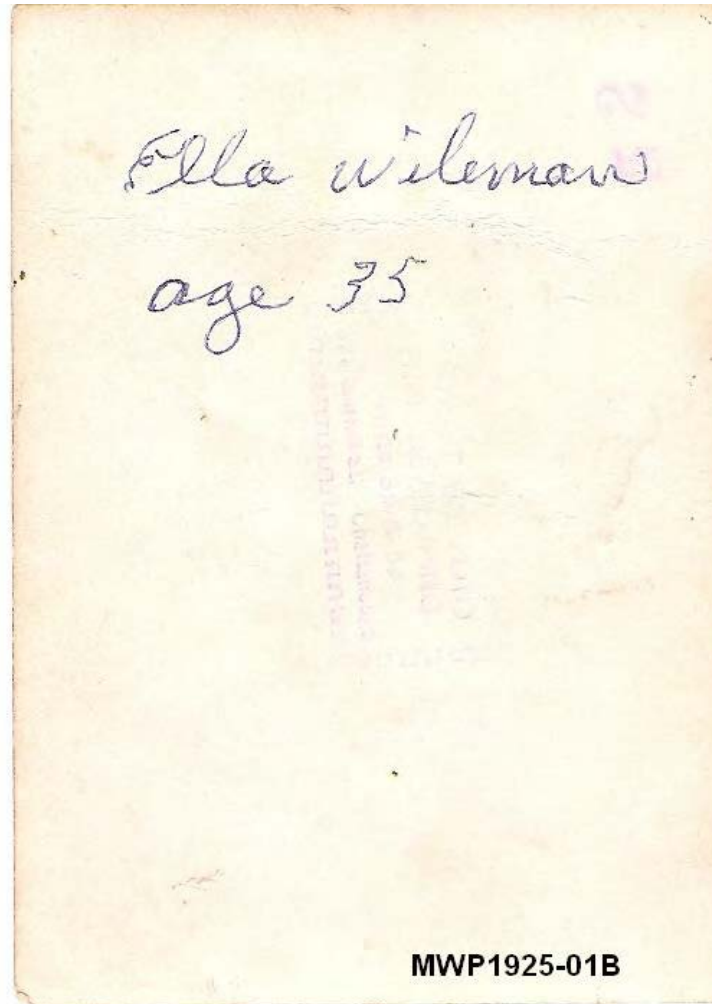 Ella Wileman
age 35
MWP1925-01B